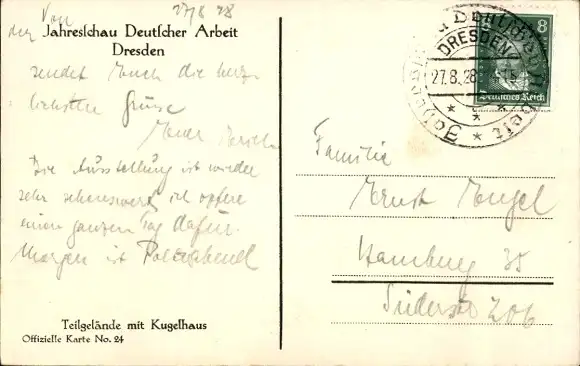 27/8 28
Von
der Jahresschau Deutscher Arbeit
Dresden
sendet Euch die herz-
lichsten Grüsse
Euer
Die Ausstellung ist wieder
sehr sehenswert, ich opfere
einen ganzen Tag dafür.
Morgen ist Polterabend
Teilgelände mit Kugelhaus
Offizielle Karte No. 24
8
DRESDEN
27.8.28
Deutsches Reich
Familie
Ernst Engel
Hamburg 35
Süderstr 206